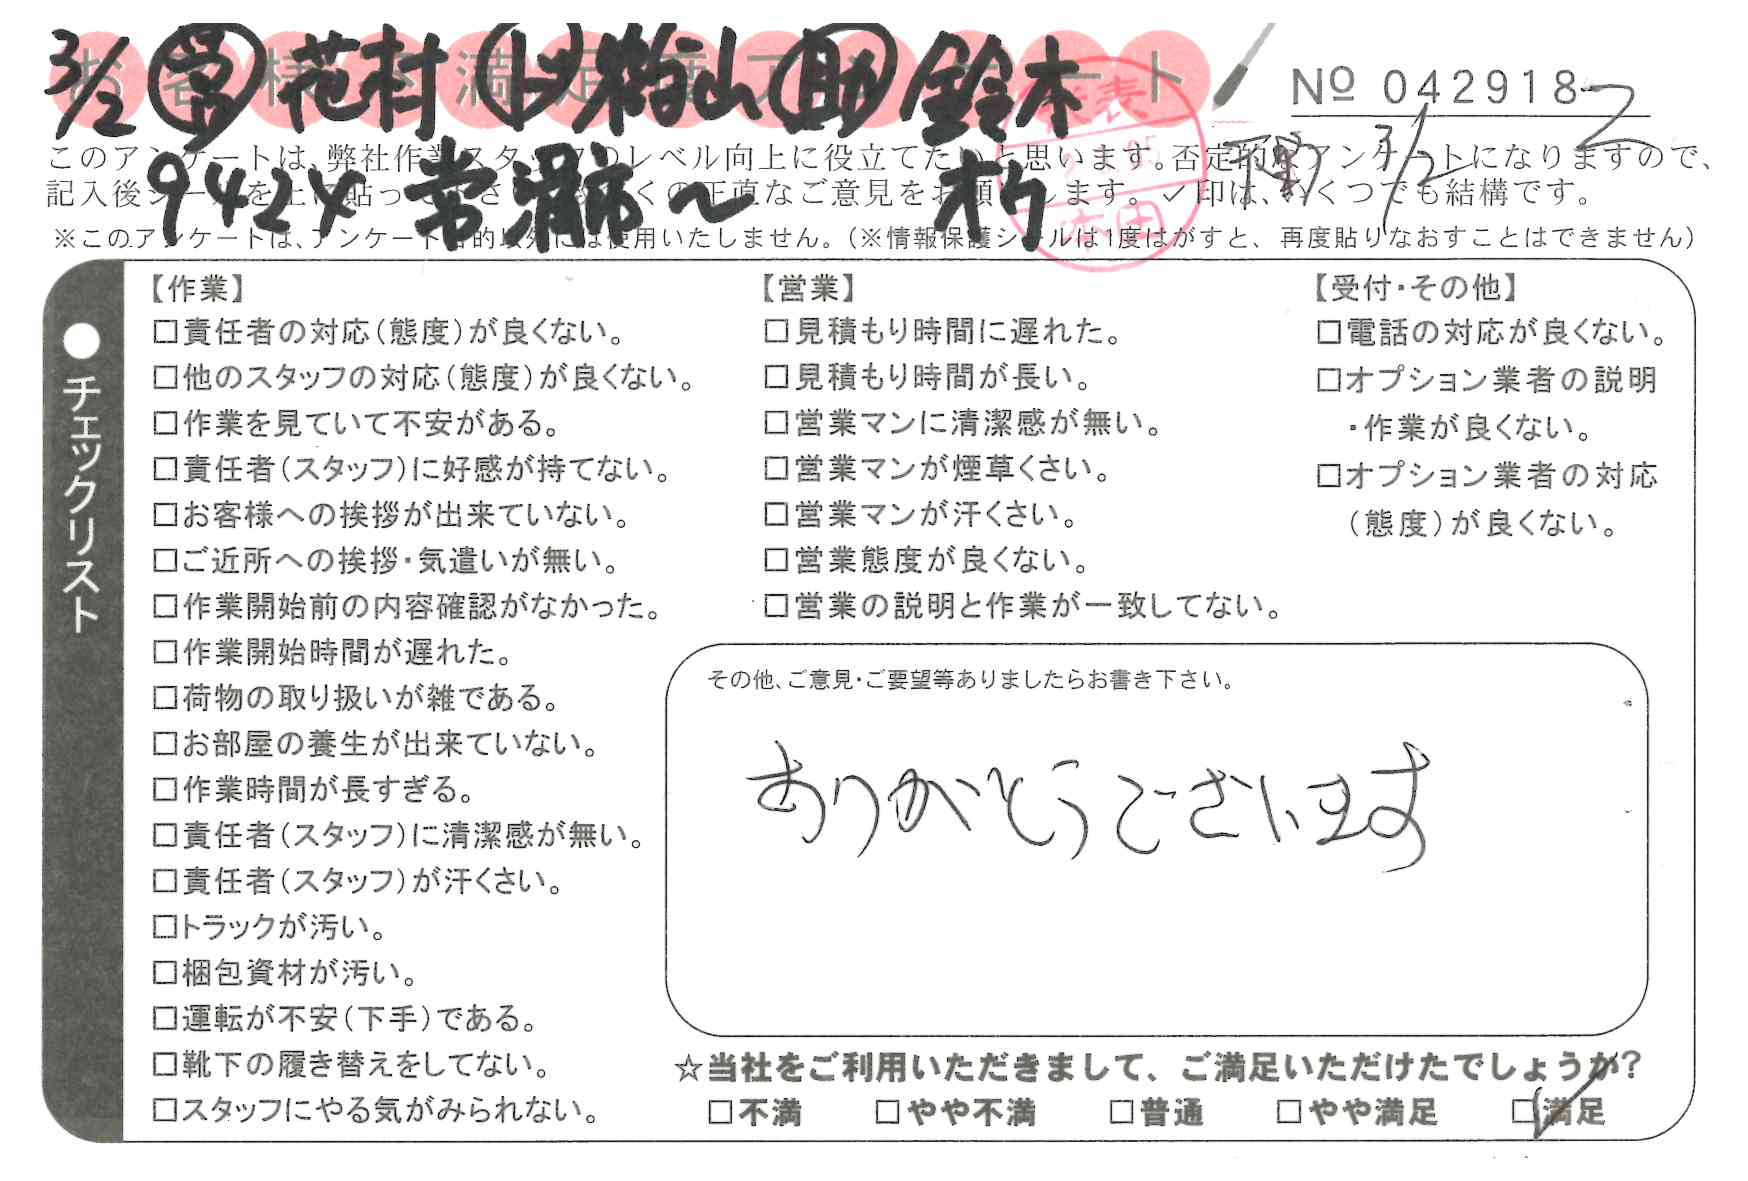 お客様 満足度アンケート
3/2 営 花村 ト 山 助 鈴木
№ 042918-2
このアンケートは、弊社作業スタッフのレベル向上に役立てたいと思います。否定的なアンケートになりますので、
3/2
記入後シールを上に貼ってください。多くの正直なご意見をお願いします。✓印は、いくつでも結構です。
942X 常滑市〜
※このアンケートは、アンケート目的以外には使用いたしません。(※情報保護シールは1度はがすと、再度貼りなおすことはできません)
●チェックリスト
【作業】
□責任者の対応(態度)が良くない。
□他のスタッフの対応(態度)が良くない。
□作業を見ていて不安がある。
□責任者(スタッフ)に好感が持てない。
□お客様への挨拶が出来ていない。
□ご近所への挨拶・気遣いが無い。
□作業開始前の内容確認がなかった。
□作業開始時間が遅れた。
□荷物の取り扱いが雑である。
□お部屋の養生が出来ていない。
□作業時間が長すぎる。
□責任者(スタッフ)に清潔感が無い。
□責任者(スタッフ)が汗くさい。
□トラックが汚い。
□梱包資材が汚い。
□運転が不安(下手)である。
□靴下の履き替えをしてない。
□スタッフにやる気がみられない。
【営業】
□見積もり時間に遅れた。
□見積もり時間が長い。
□営業マンに清潔感が無い。
□営業マンが煙草くさい。
□営業マンが汗くさい。
□営業態度が良くない。
□営業の説明と作業が一致してない。
【受付・その他】
□電話の対応が良くない。
□オプション業者の説明
・作業が良くない。
□オプション業者の対応
(態度)が良くない。
その他、ご意見・ご要望等ありましたらお書き下さい。
ありがとうございます
☆当社をご利用いただきまして、ご満足いただけたでしょうか?
□不満 □やや不満 □普通 □やや満足 ☑満足